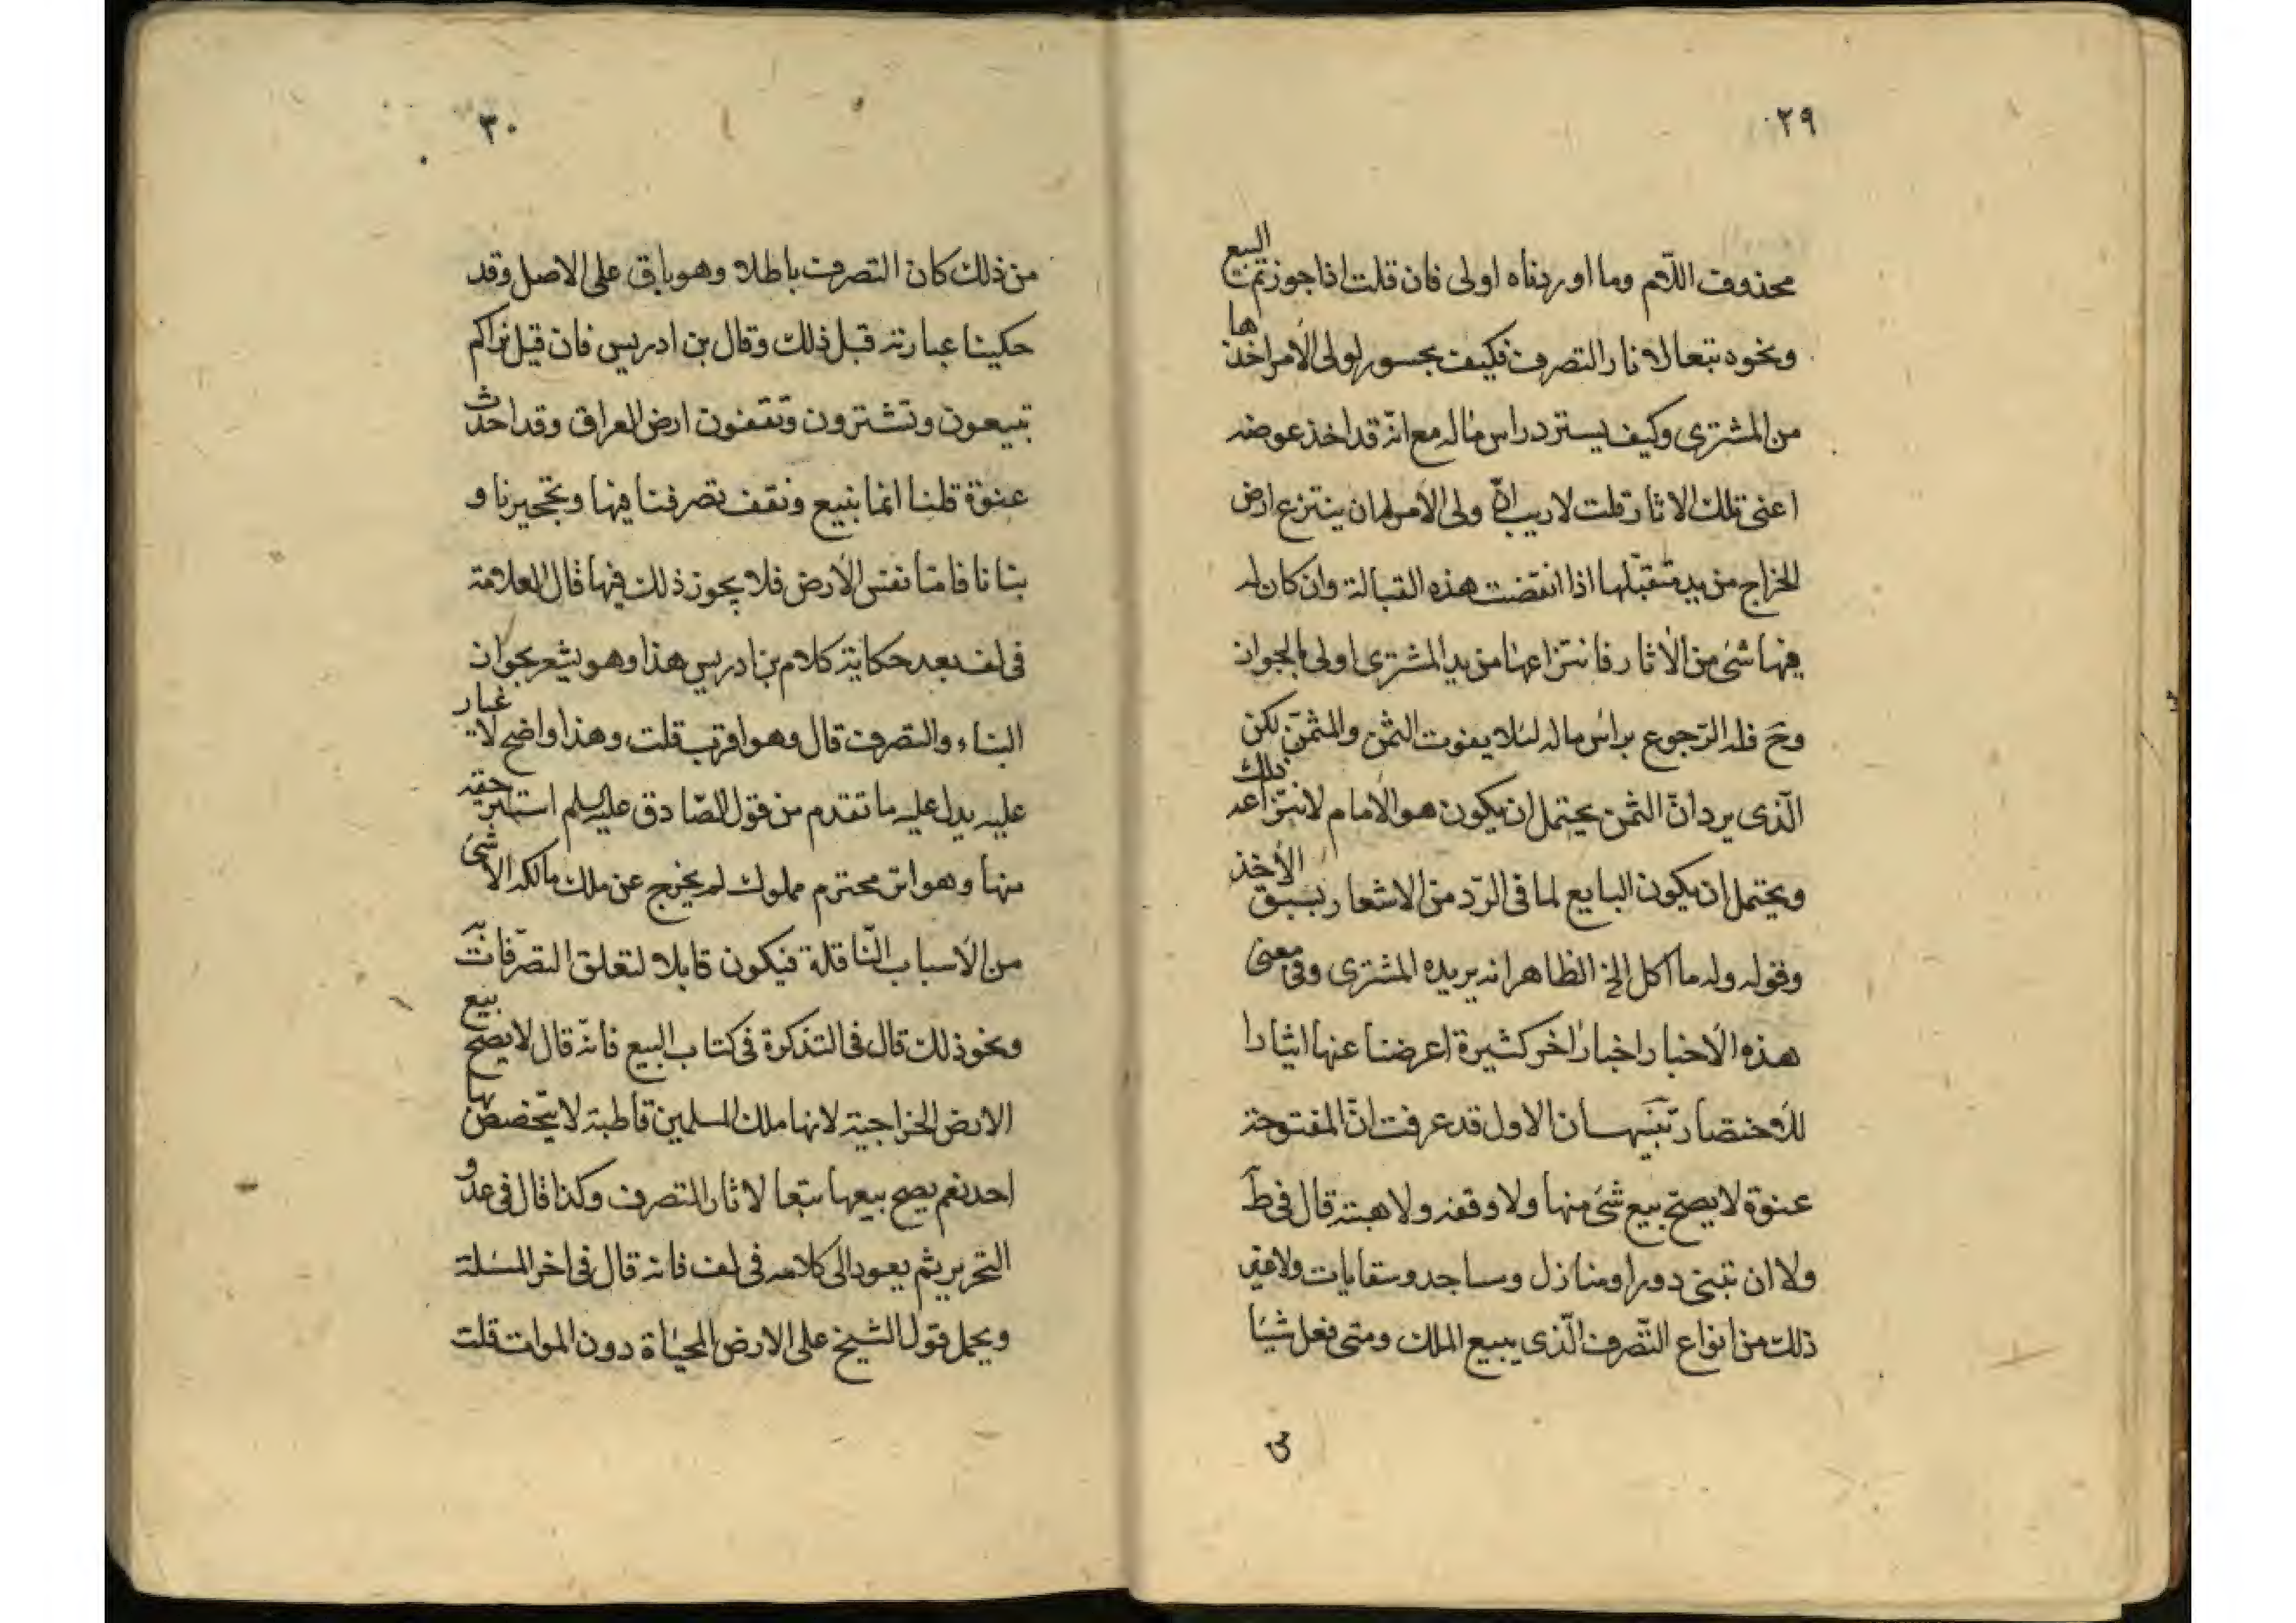 ٢٩
محذوف اللام وما اوردناه اولى فان قلت اذا جوزتم البيع
ونحوه تبعا لاثار التصرف فكيف يجوز لولى الامر اخذها
من المشترى وكيف يسترد راس ماله مع انه قد اخذ عوضه
اعنى تلك الاثار قلت لاريب ان ولى الامر له ان ينتزع ارض
الخراج من يد متقبلها اذا انقضت هذه القبالة وان كان له
فيها شئ من الاثار فانتزاعها من يد المشترى اولى بالجواز
وح فله الرجوع براس ماله لئلا يفوت الثمن والمثمن لكن
الذى يرد ان الثمن يحتمل ان يكون هو الامام لانتزاعه ذلك
ويحتمل ان يكون البايع لما فى الرد من الاشعار بسبق الأخذ
وقوله وله ما اكل الخ الظاهر انه يريد به المشترى وفى معنى
هذه الاخبار اخبار اخر كثيرة اعرضنا عنها ايثارا
للاختصار تنبيهان الاول قد عرفت ان المفتوحة
عنوة لا يصح بيع شئ منها ولا وقفه ولا هبته قال فى ط
ولا ان تبنى دورا ومنازل ومساجد وسقايات ولا غير
ذلك من انواع التصرف الذى يبيع الملك ومتى فعل شيئا
٣٠
من ذلك كان التصرف باطلا وهو باق على الاصل وقد
حكينا عبارته قبل ذلك وقال بن ادريس فان قيل نراكم
تبيعون وتشترون وتقفون ارض العراق وقد اخذت
عنوة قلنا انما نبيع ونقف تصرفنا فيها وتحجيرنا و
بنانا فاما نفس الارض فلا يجوز ذلك فيها قال العلامة
فى لف بعد حكاية كلام بن ادريس هذا وهو يشعر بجواز
البناء والتصرف قال وهو اقرب قلت وهذا واضح لا غبار
عليه يدل عليه ما تقدم من قول الصادق عليه السلم اشتر حقه
منها وهو اثر محترم مملوك لم يخرج عن ملك مالكه الا بشئ
من الاسباب الناقلة فيكون قابلا لتعلق التصرفات به
ونحو ذلك قال فى التذكرة فى كتاب البيع فانه قال لا يصح بيع
الارض الخراجية لانها ملك المسلمين قاطبة لا يتخصص بها
احد نعم يصح بيعها تبعا لاثار التصرف وكذا قال فى عد و
التحرير ثم يعود الى كلامه فى لف فانه قال فى اخر المسئلة
ويحمل قول الشيخ على الارض المحياة دون الموات قلت